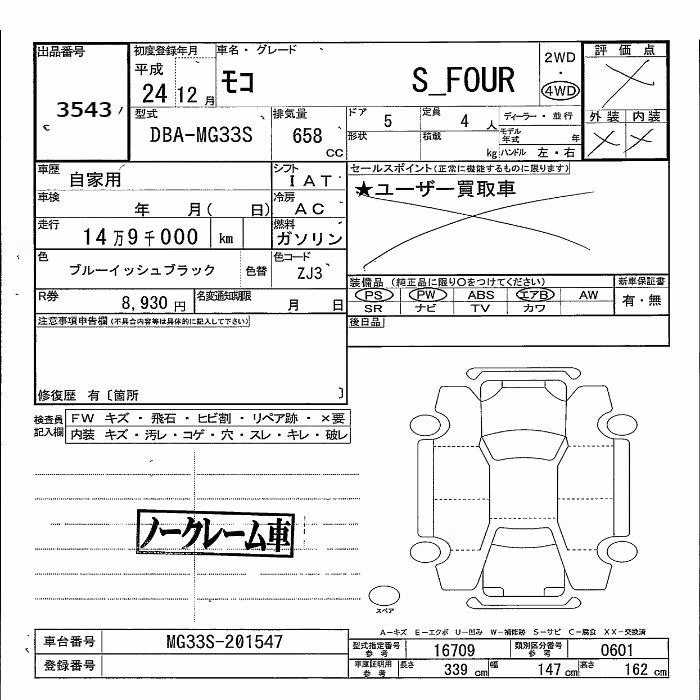 出品番号
3543
初度登録年月
平成
24 12 月
車名・グレード
モコ S_FOUR
2WD
・
4WD
評価点
外装 内装
型式
DBA-MG33S
排気量
658
cc
ドア 5
定員 4 人
形状
積載 kg
ディーラー・並行
モデル年式 年
ハンドル 左・右
車歴 自家用
シフト IAT
車検 年 月( 日)
冷房 AC
走行 14万9千000 km
燃料 ガソリン
色 ブルーイッシュブラック 色替
色コード ZJ3
R券 8,930 円
名変通知期限 月 日
セールスポイント(正常に機能するものに限ります)
★ユーザー買取車
装備品 (純正品に限り○をつけてください)
PS PW ABS エアB AW
SR ナビ TV カワ
新車保証書
有・無
後日品
注意事項申告欄(不具合内容等は具体的に記入して下さい)
修復歴 有〔箇所 〕
検査員記入欄
FW キズ ・ 飛石 ・ ヒビ割 ・ リペア跡 ・ ×要
内装 キズ・汚レ・コゲ・穴・スレ・キレ・破レ
ノークレーム車
スペア
A-キズ E-エクボ U-凹み W-補修跡 S-サビ C-腐食 XX-交換済
車台番号 MG33S-201547
登録番号
型式指定番号 参考 16709
類別区分番号 参考 0601
車庫証明用 参考 長さ 339 cm 幅 147 cm 高さ 162 cm